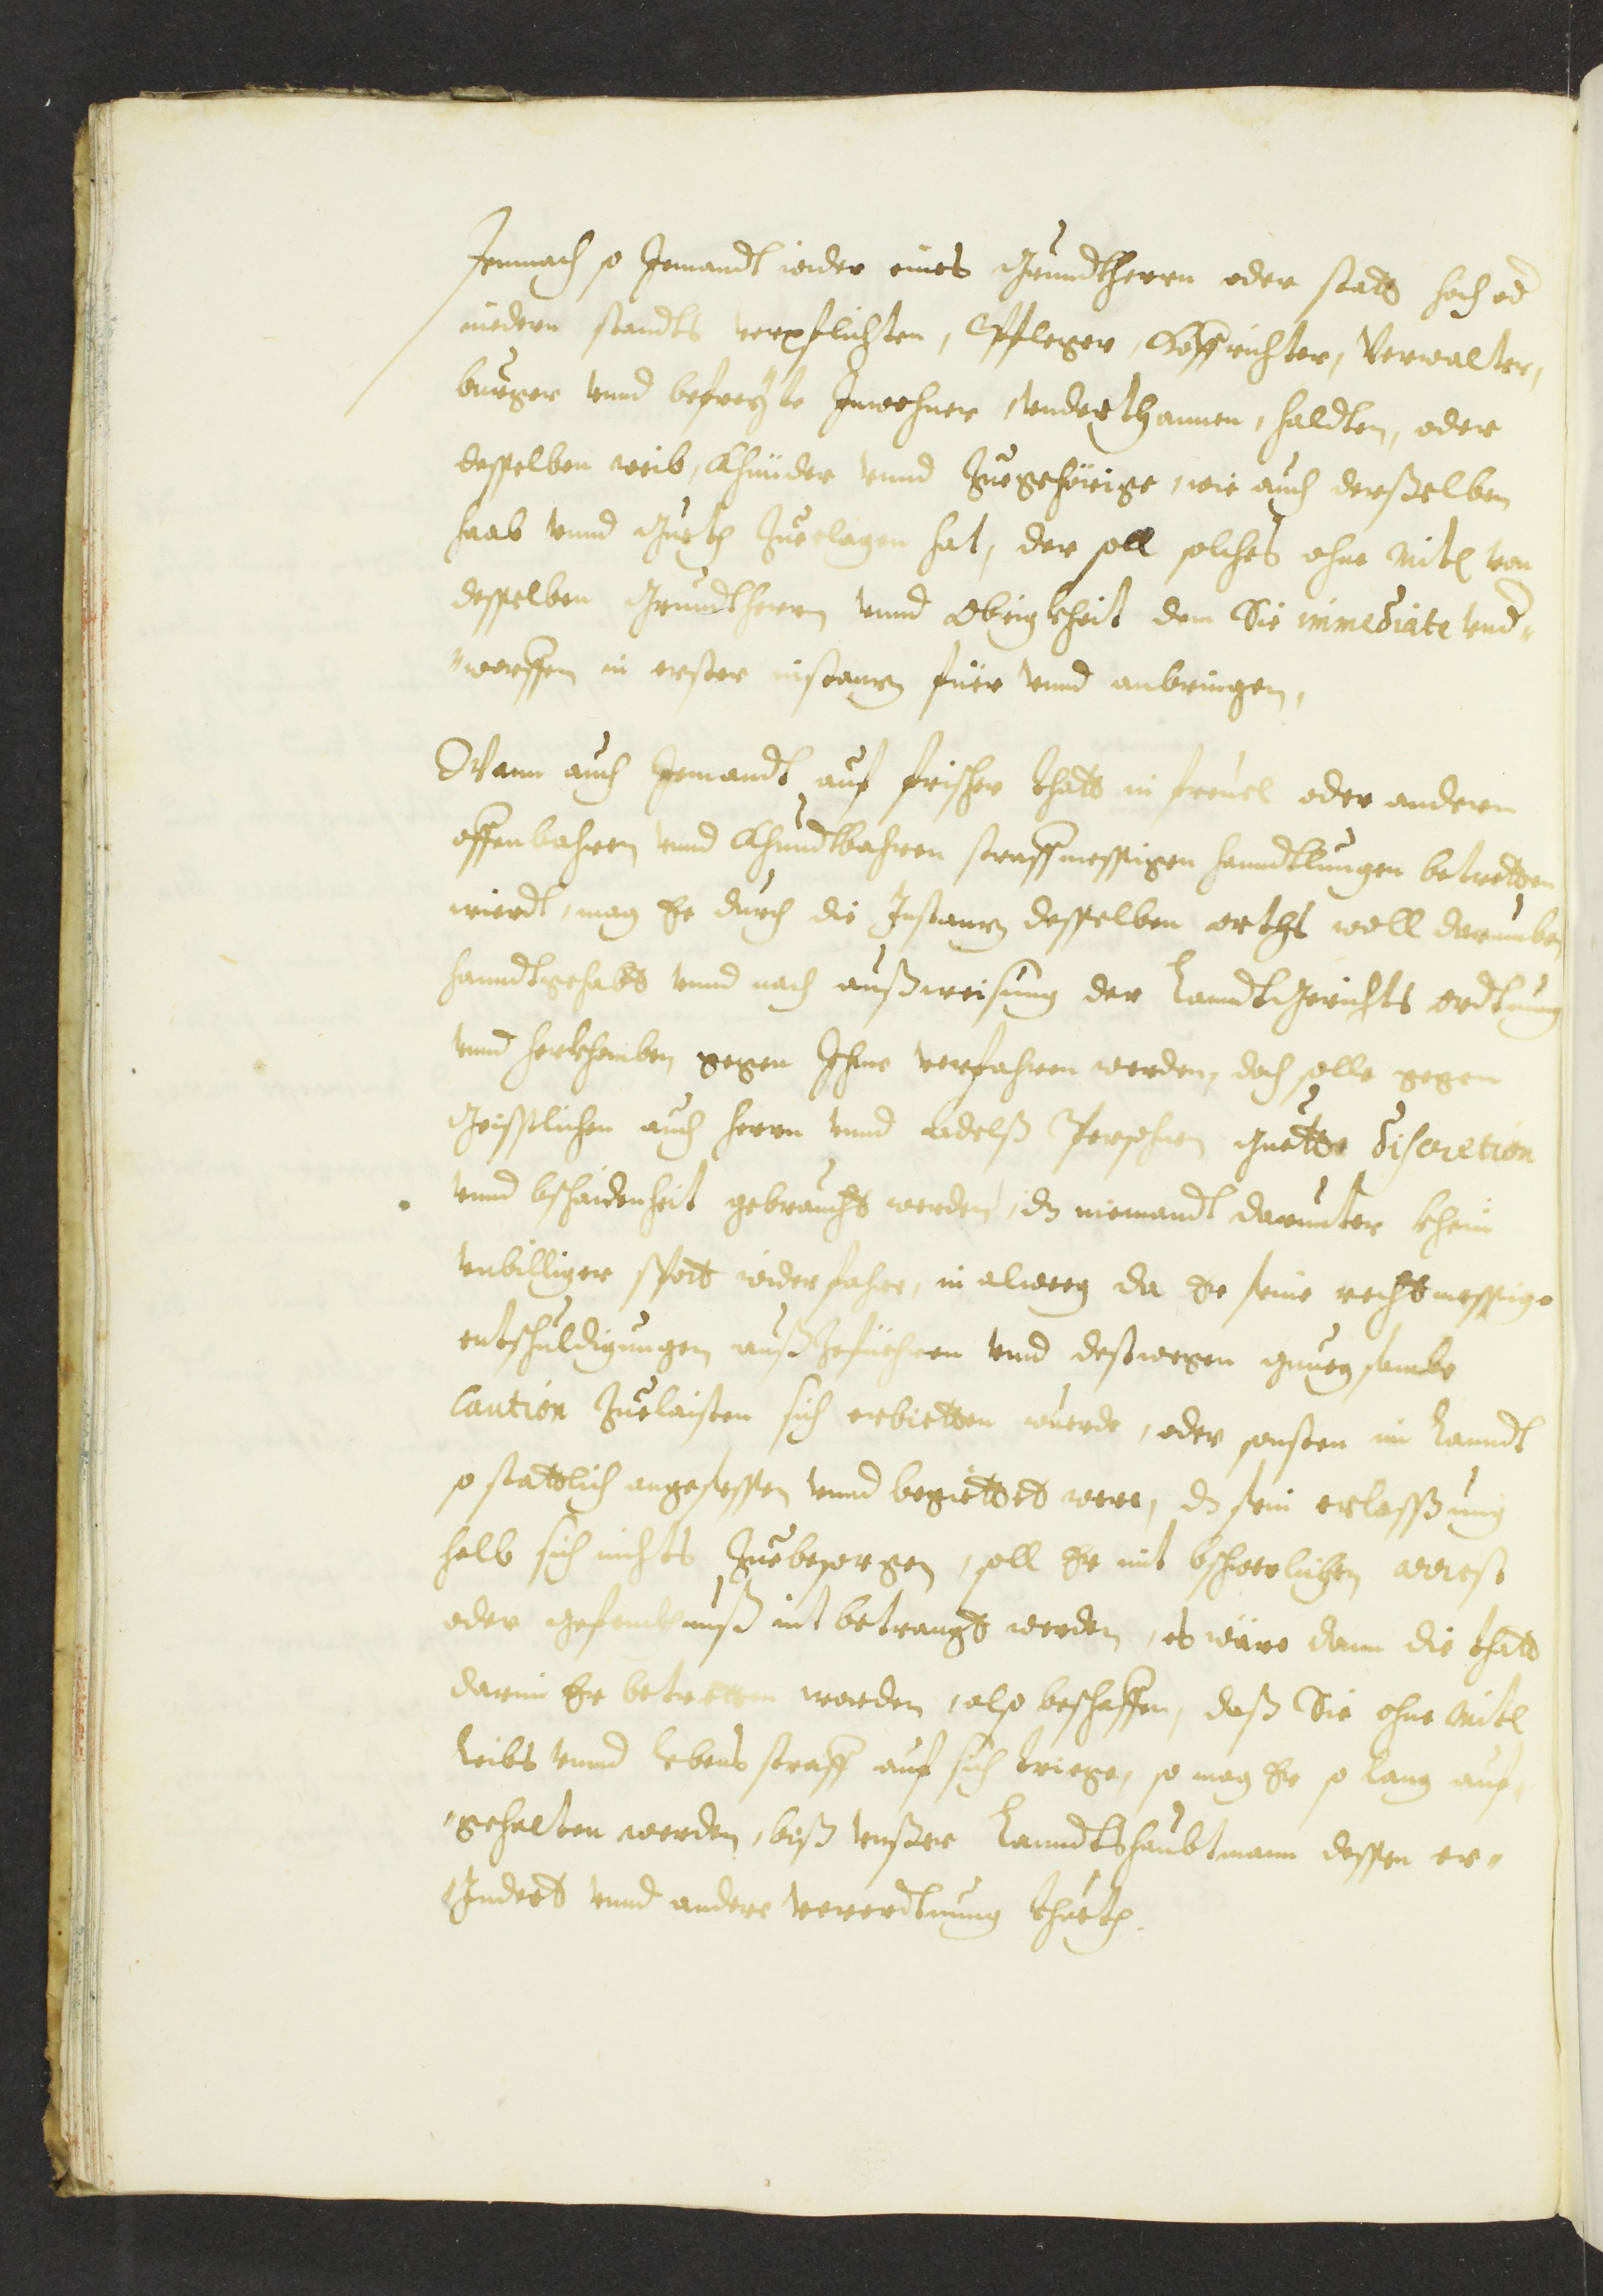 Jemnach so Jemandt wider eines Grundtherrn oder statt hoch od
niedern standts verpflichten, Pfleger, Hoffrichter, Verwalter,
burger vnnd befreyte Inwohner, vnderthannen, holdten, oder
desselben weib, Khinder vnnd Zuegehörige, wie auch derßelben
haab vnnd Gueth Zueclagen hat, der soll solches ohne mitl von
desselben Grundtherrn vnnd Obrigkheit dem Sie immediate vnd-
-worffen in erster instannz führ vnnd anbringen,
Wann auch Jemandt auf frischer thatt in freuel oder andern
offenbahren vnnd Khundtbahren straffmessigen hanndtlungen betretten
wierdt, mag Er durch die Instannz desselben orths woll darumben
hanndtgehabt vnnd nach außweisung der Lanndt Gerichts ordtnung
vnnd herkhomben gegen Ihme verfahren werden, doch solle gegen
Geistlichen auch herrn vnnd adelß Persohnen guette discretion
vnnd bschaidenheit gebraucht werden, dz niemandt darunter khein
vnbilliger spott widerfahre, in alweeg da Er seine rechtmessige
entschuldigungen auß Zefüehren vnnd destwegen gnuegsambe
Caution Zuelaisten sich erbietten wuerde, oder sonsten im Lanndt
so stattlich angesessen vnnd begüettet were, dz sein erlassung
halb sich nichts Zuebesorgen, soll Er mit bschwerlichen arrest
oder gefenckhnuß nit betrangt werden, es wäre dann die thatt
darin Er betretten worden, also beschaffen, daß Sie ohne mitl
Leibs vnnd Lebens straff auf sich triege, so mag Er so lang auf-
-gehalten werden, biß vnßer Lanndtshaubtmann dessen er-
Indert vnnd andere verordtnung thueth.